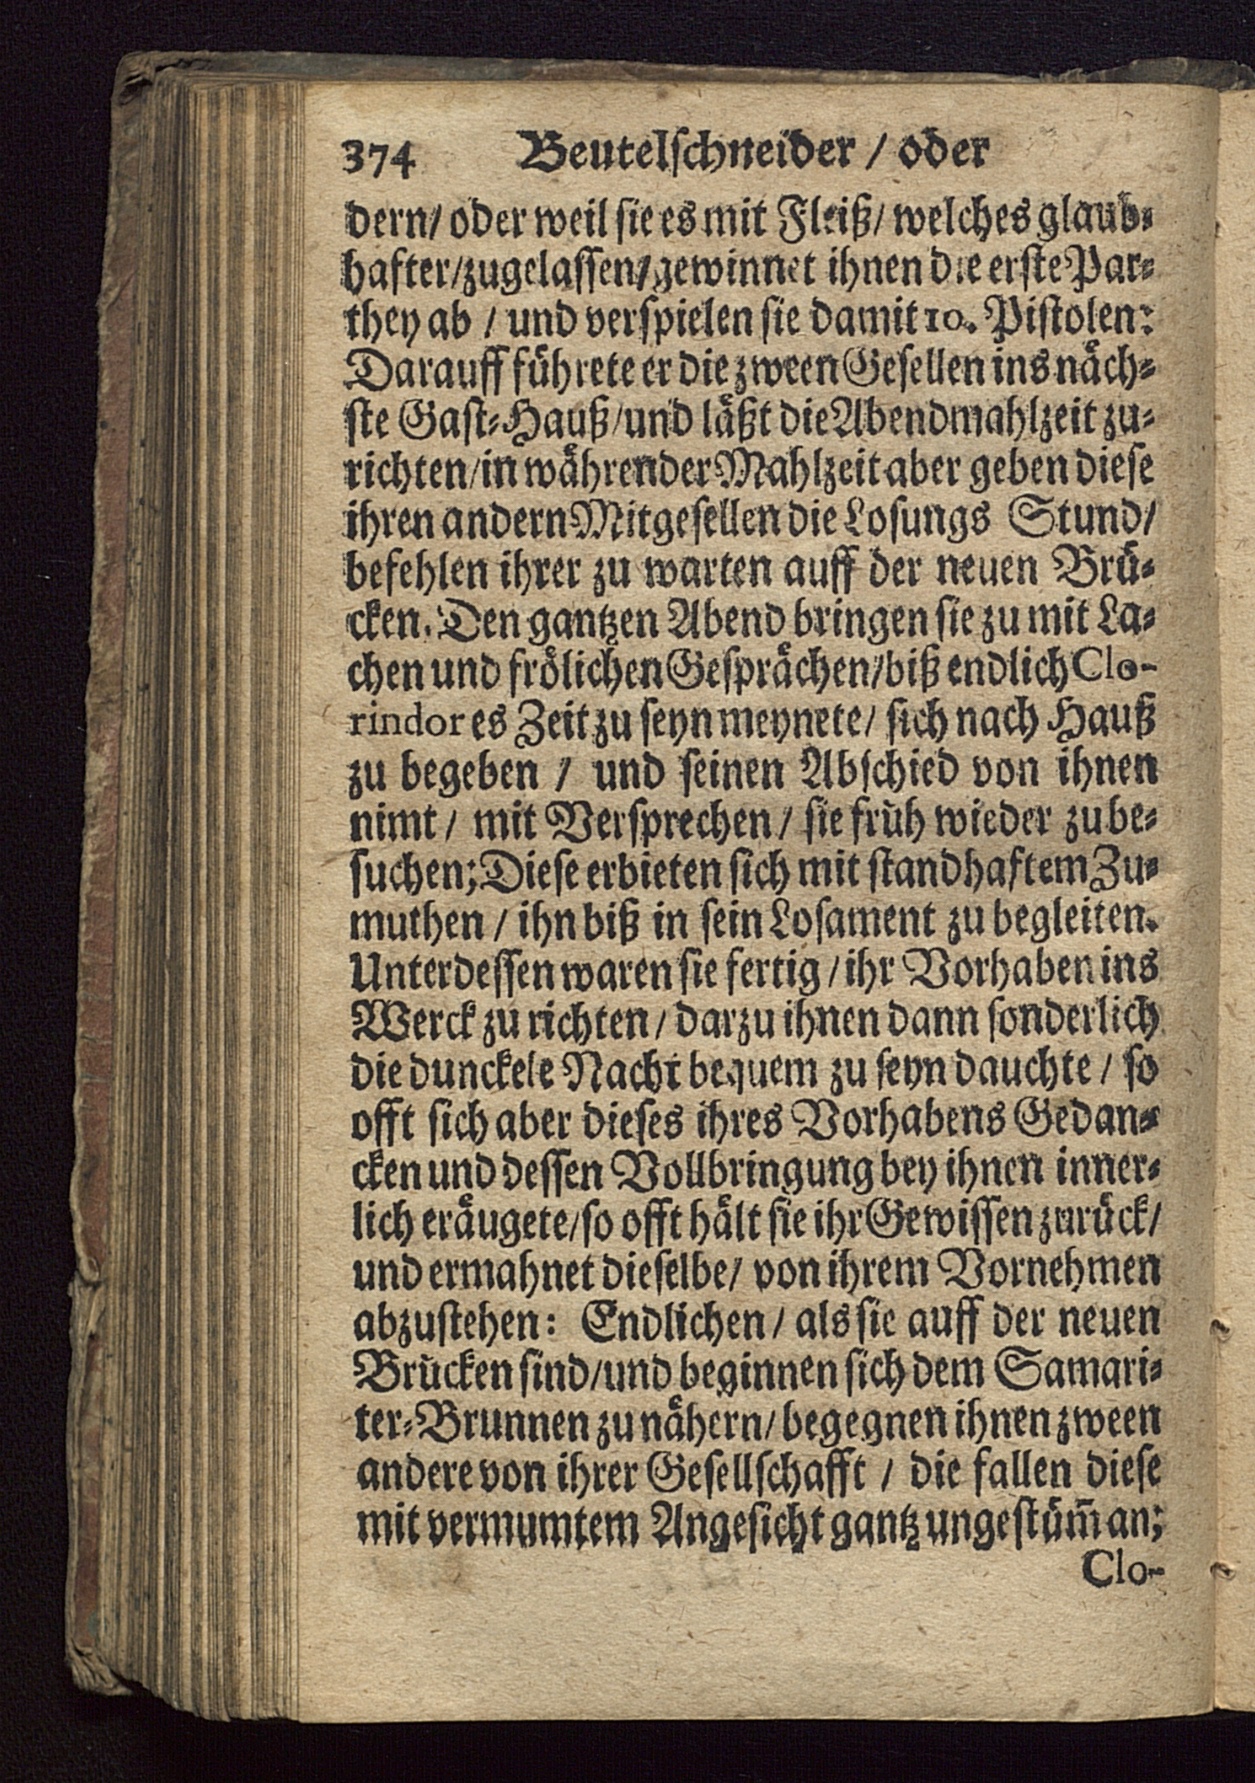 374 Beutelschneider / oder
dern/ oder weil sie es mit Fleiß/ welches glaub-
hafter/zugelassen/gewinnet ihnen die erste Par-
they ab / und verspielen sie damit 10. Pistolen:
Darauff führete er die zween Gesellen ins näch-
ste Gast-Hauß/und läßt die Abendmahlzeit zu-
richten/in währender Mahlzeit aber geben diese
ihren andern Mitgesellen die Losungs Stund/
befehlen ihrer zu warten auff der neuen Brü-
cken. Den gantzen Abend bringen sie zu mit La-
chen und frölichen Gesprächen/biß endlich Clo-
rindor es Zeit zu seyn meynete/ sich nach Hauß
zu begeben / und seinen Abschied von ihnen
nimt/ mit Versprechen/ sie früh wieder zu be-
suchen; Diese erbieten sich mit standhaftem Zu-
muthen / ihn biß in sein Losament zu begleiten.
Unterdessen waren sie fertig/ ihr Vorhaben ins
Werck zu richten/ darzu ihnen dann sonderlich
die dunckele Nacht bequem zu seyn dauchte / so
offt sich aber dieses ihres Vorhabens Gedan-
cken und dessen Vollbringung bey ihnen inner-
lich eräugete/so offt hält sie ihr Gewissen zurück/
und ermahnet dieselbe/ von ihrem Vornehmen
abzustehen: Endlichen / als sie auff der neuen
Brücken sind/und beginnen sich dem Samari-
ter-Brunnen zu nähern/ begegnen ihnen zween
andere von ihrer Gesellschafft / die fallen diese
mit vermumtem Angesicht gantz ungestüm̃ an;
Clo-